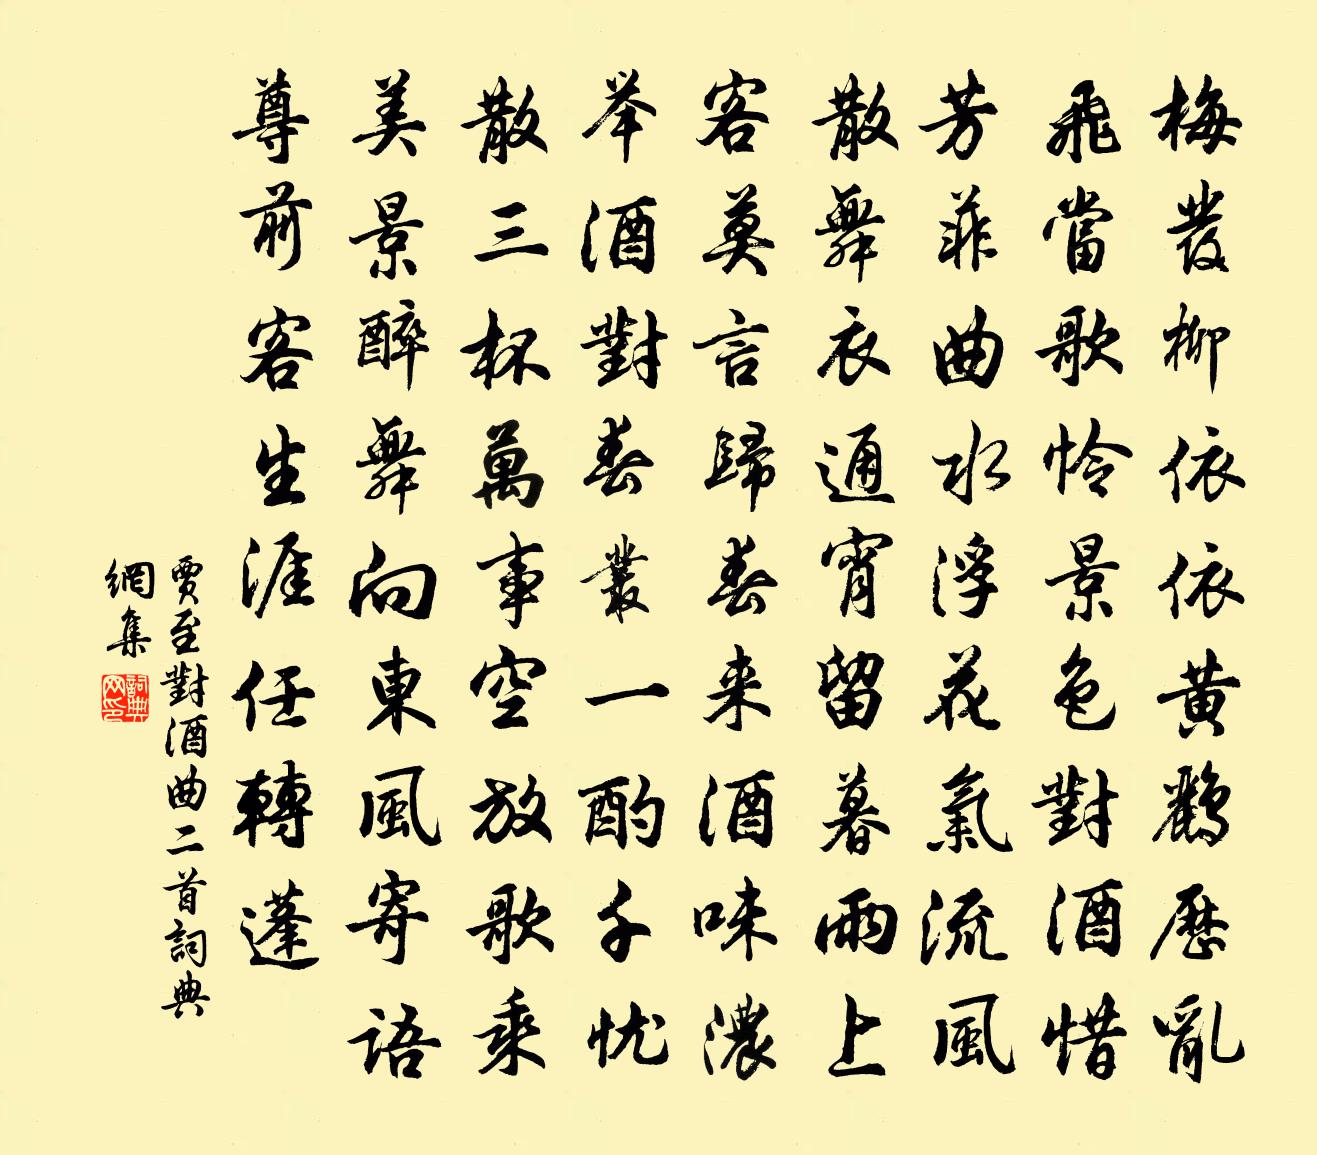 梅發柳依依黄鸝歷亂
飛當歌怜景色對酒惜
芳菲曲水浮花氣流風
散舞衣通宵留暮雨上
客莫言歸春来酒味濃
举酒對春叢一酌千忧
散三杯萬事空放歌乘
美景醉舞向東風寄語
尊前客生涯任轉蓬
賈至對酒曲二首詞典
網集
詞典
网印